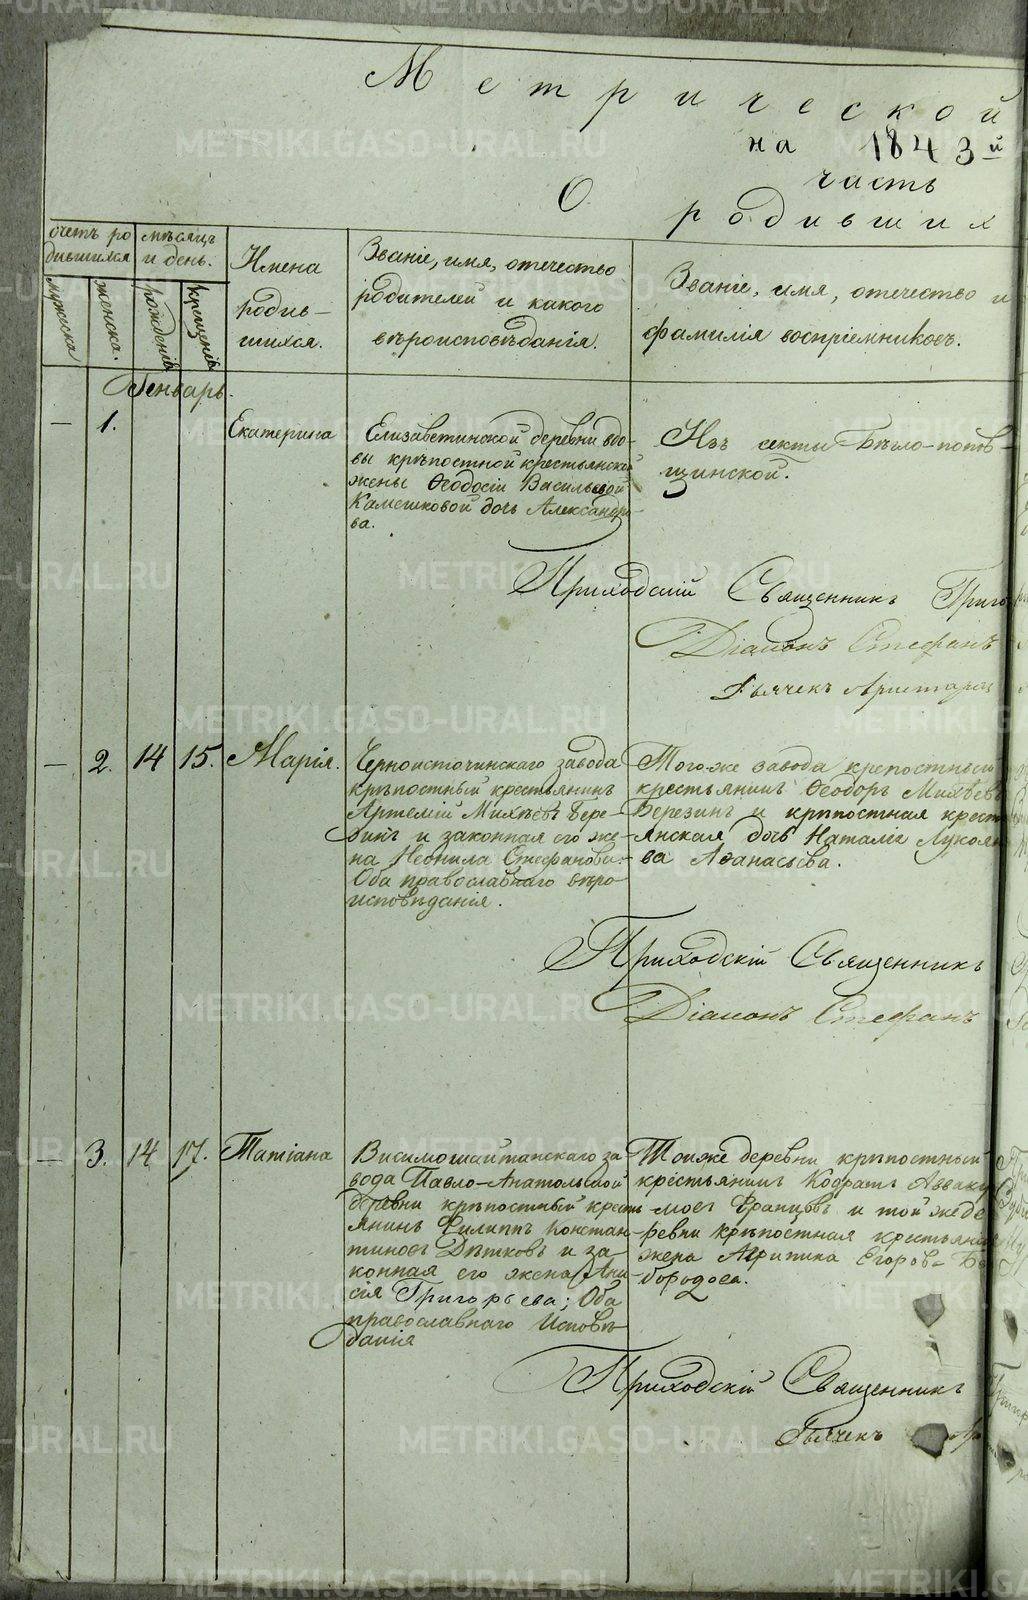 Метрической
на 1843й
часть
О родивших
счетъ ро
дившихся
мѣсяцъ
и день.
мужеска
женска.
рожденія
крещенія
Имена
родив–
шихся.
Званіе, имя, отечество
родителей и какого
вѣроисповѣданія.
Званіе, имя, отечество и
фамилія воспріемниковъ.
Генварь.
— 1.
Екатерина
Елизаветинской деревни вдо-
вы крѣпостной крестьянской
жены Ѳеодосіи Васильевой
Камешковой дочь Александро-
ва.
Изъ секты Бѣгло-попов-
щинской.
Приходскій Священникъ Григо
Діаконъ Стефанъ
Дьячекъ Аристарх
— 2. 14 15. Марія.
Черноисточинскаго завода
крѣпостный крестьянинъ
Артемій Михѣевъ Бере-
зинъ и законная его же-
на Неонила Стефанова.
Оба православнаго вѣро-
исповѣданія.
Того-же завода крепостный
крестьянинъ Ѳеодоръ Михѣевъ
Березинъ и крѣпостная крест
янская дочь Наталія Лукоян
ва Аѳанасьева.
Приходскій Священникъ
Діаконъ Стефанъ
— 3. 14 17. Татіана
Висимошайтанскаго за
вода Павло-Анатольской
деревни крѣпостный крест
янинъ Филиппъ Констан-
тиновъ Дѣтковъ и за-
конная его жена Ани-
сія Григорьева; Оба
православнаго Исповѣ-
данія
Тойже деревни крѣпостный
крестьянинъ Кодратъ Авваку
мовъ Францовъ и той же де
ревни крѣпостная крестьянс
жена Агрипина Егоров- Б
бородова.
Приходскій Священникъ
Дьячекъ
METRIKI.GASO-URAL.RU